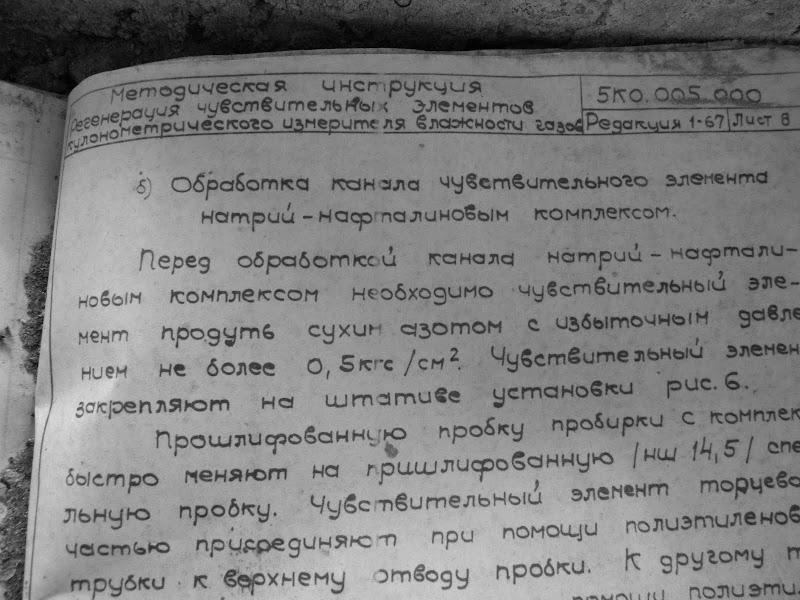 Методическая инструкция
Регенерация чувствительных элементов
кулонометрического измерителя влажности газов
5К0.005.000
Редакция 1-67 Лист 8
б) Обработка канала чувствительного элемента
натрий-нафталиновым комплексом.
Перед обработкой канала натрий-нафтали-
новым комплексом необходимо чувствительный эле-
мент продуть сухим азотом с избыточным давле
нием не более 0,5кгс/см². Чувствительный элемен
закрепляют на штативе установки рис.6.
Прошлифованную пробку пробирки с комплек
быстро меняют на пришлифованную /нш 14,5/ спе
льную пробку. Чувствительный элемент торцево
частью присединяют при помощи полиэтиленов
трубки к верхнему отводу пробки. К другому т
помощи полиэти